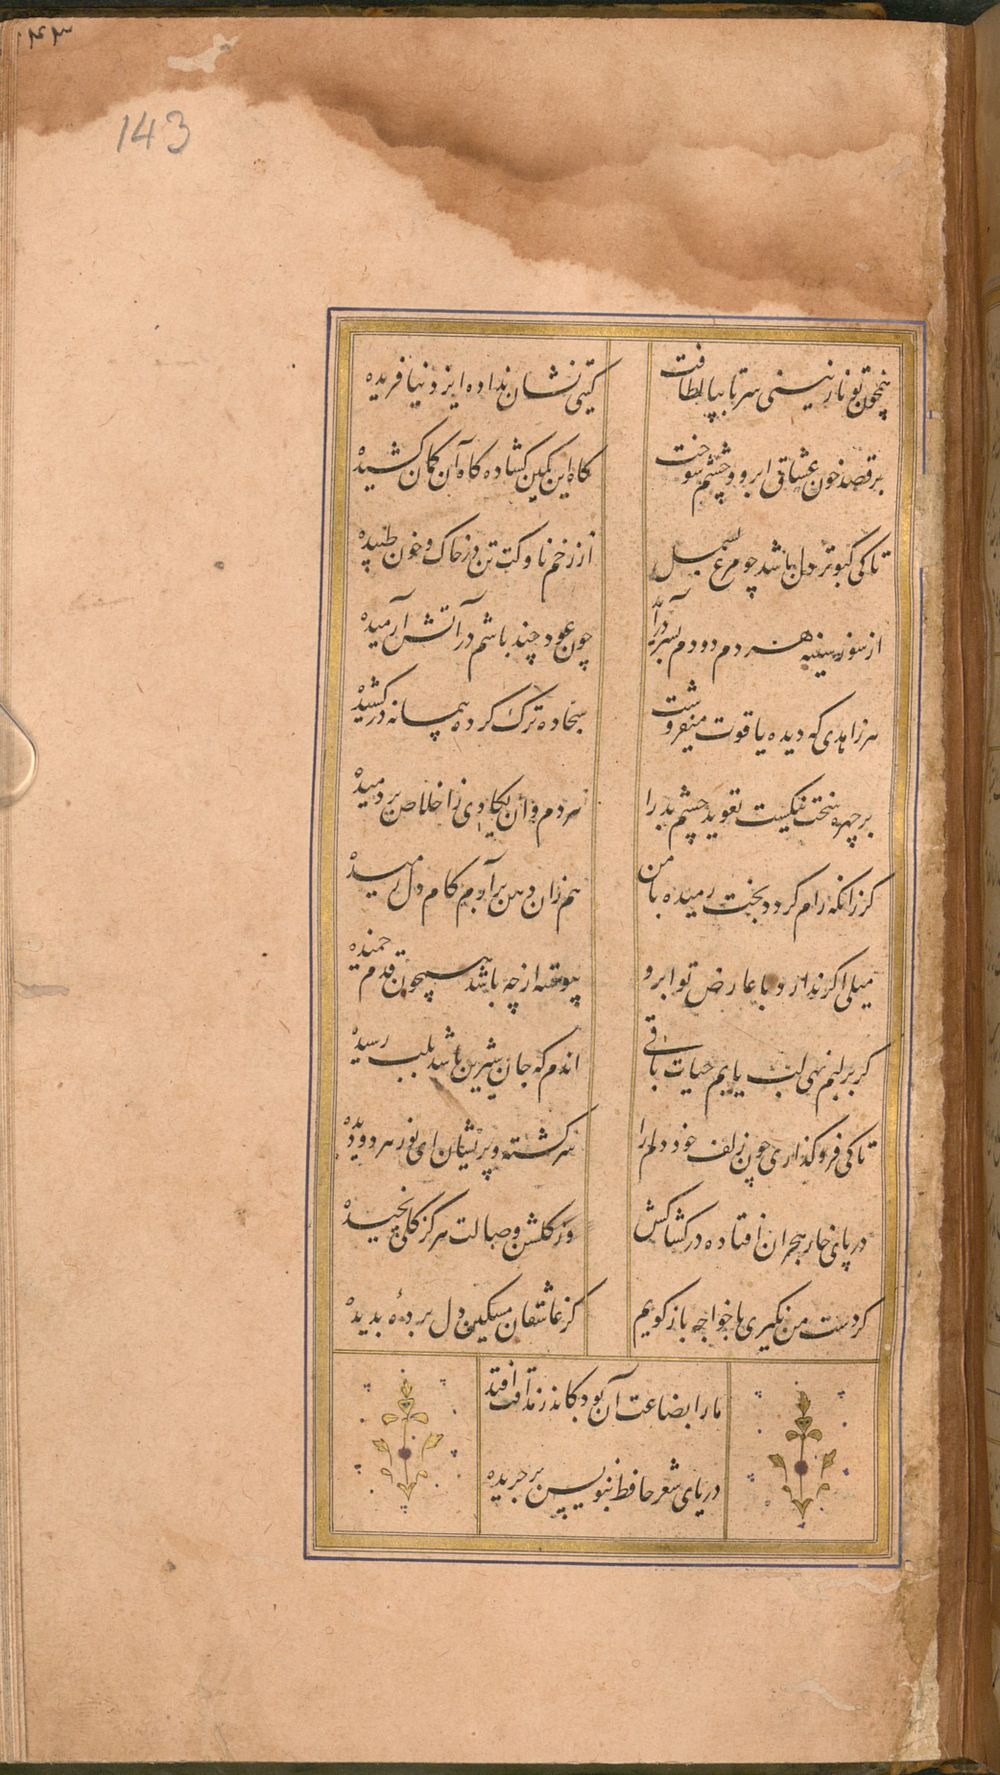 ۱۴۳
143
همچون تو نازنینی سر تا بپا لطافت
گیتی نشان نداده ایزد نیافریده
بر قصد خون عشاق ابرو و چشم شوخت
گاه این کمین گشاده گاه آن کمان کشیده
تا کی کبوتر دل باشد چو مرغ بسمل
از زخم ناوکت تن در خاک و خون طپیده
از سوز سینه هر دم دودم بسر درآید
چون عود چند باشم در آتش آرمیده
هر زاهدی که دیده یاقوت میفروشت
سجاده ترک کرده پیمانه در کشیده
بر چهره بخت نیکت تعویذ چشم بد را
هر دم وان یکادی ز اخلاص بر دمیده
کر زانکه رام گردد بخت رمیده با من
هم زان دهن برآرم کام دل رمیده
میلی اگر ندارد با عارض تو ابرو
پیوسته از چه باشد همچون قدم خمیده
گر بر لبم نهی لب یابم حیات باقی
اندم که جان شیرین باشد بلب رسیده
تا کی فرو گذاری چون زلف خود دلم را
سرگشته و پریشان ای نور هر دو دیده
در پای خار هجران افتاده در کشاکش
وز گلشن وصالت هرگز گلی نچیده
گر دست من نگیری با خواجه باز گویم
کز عاشقان مسکین دل برده بدیده
ما را بضاعت آن بود کاندر مذاقت افتد
دریای شعر حافظ بنویس بر جریده